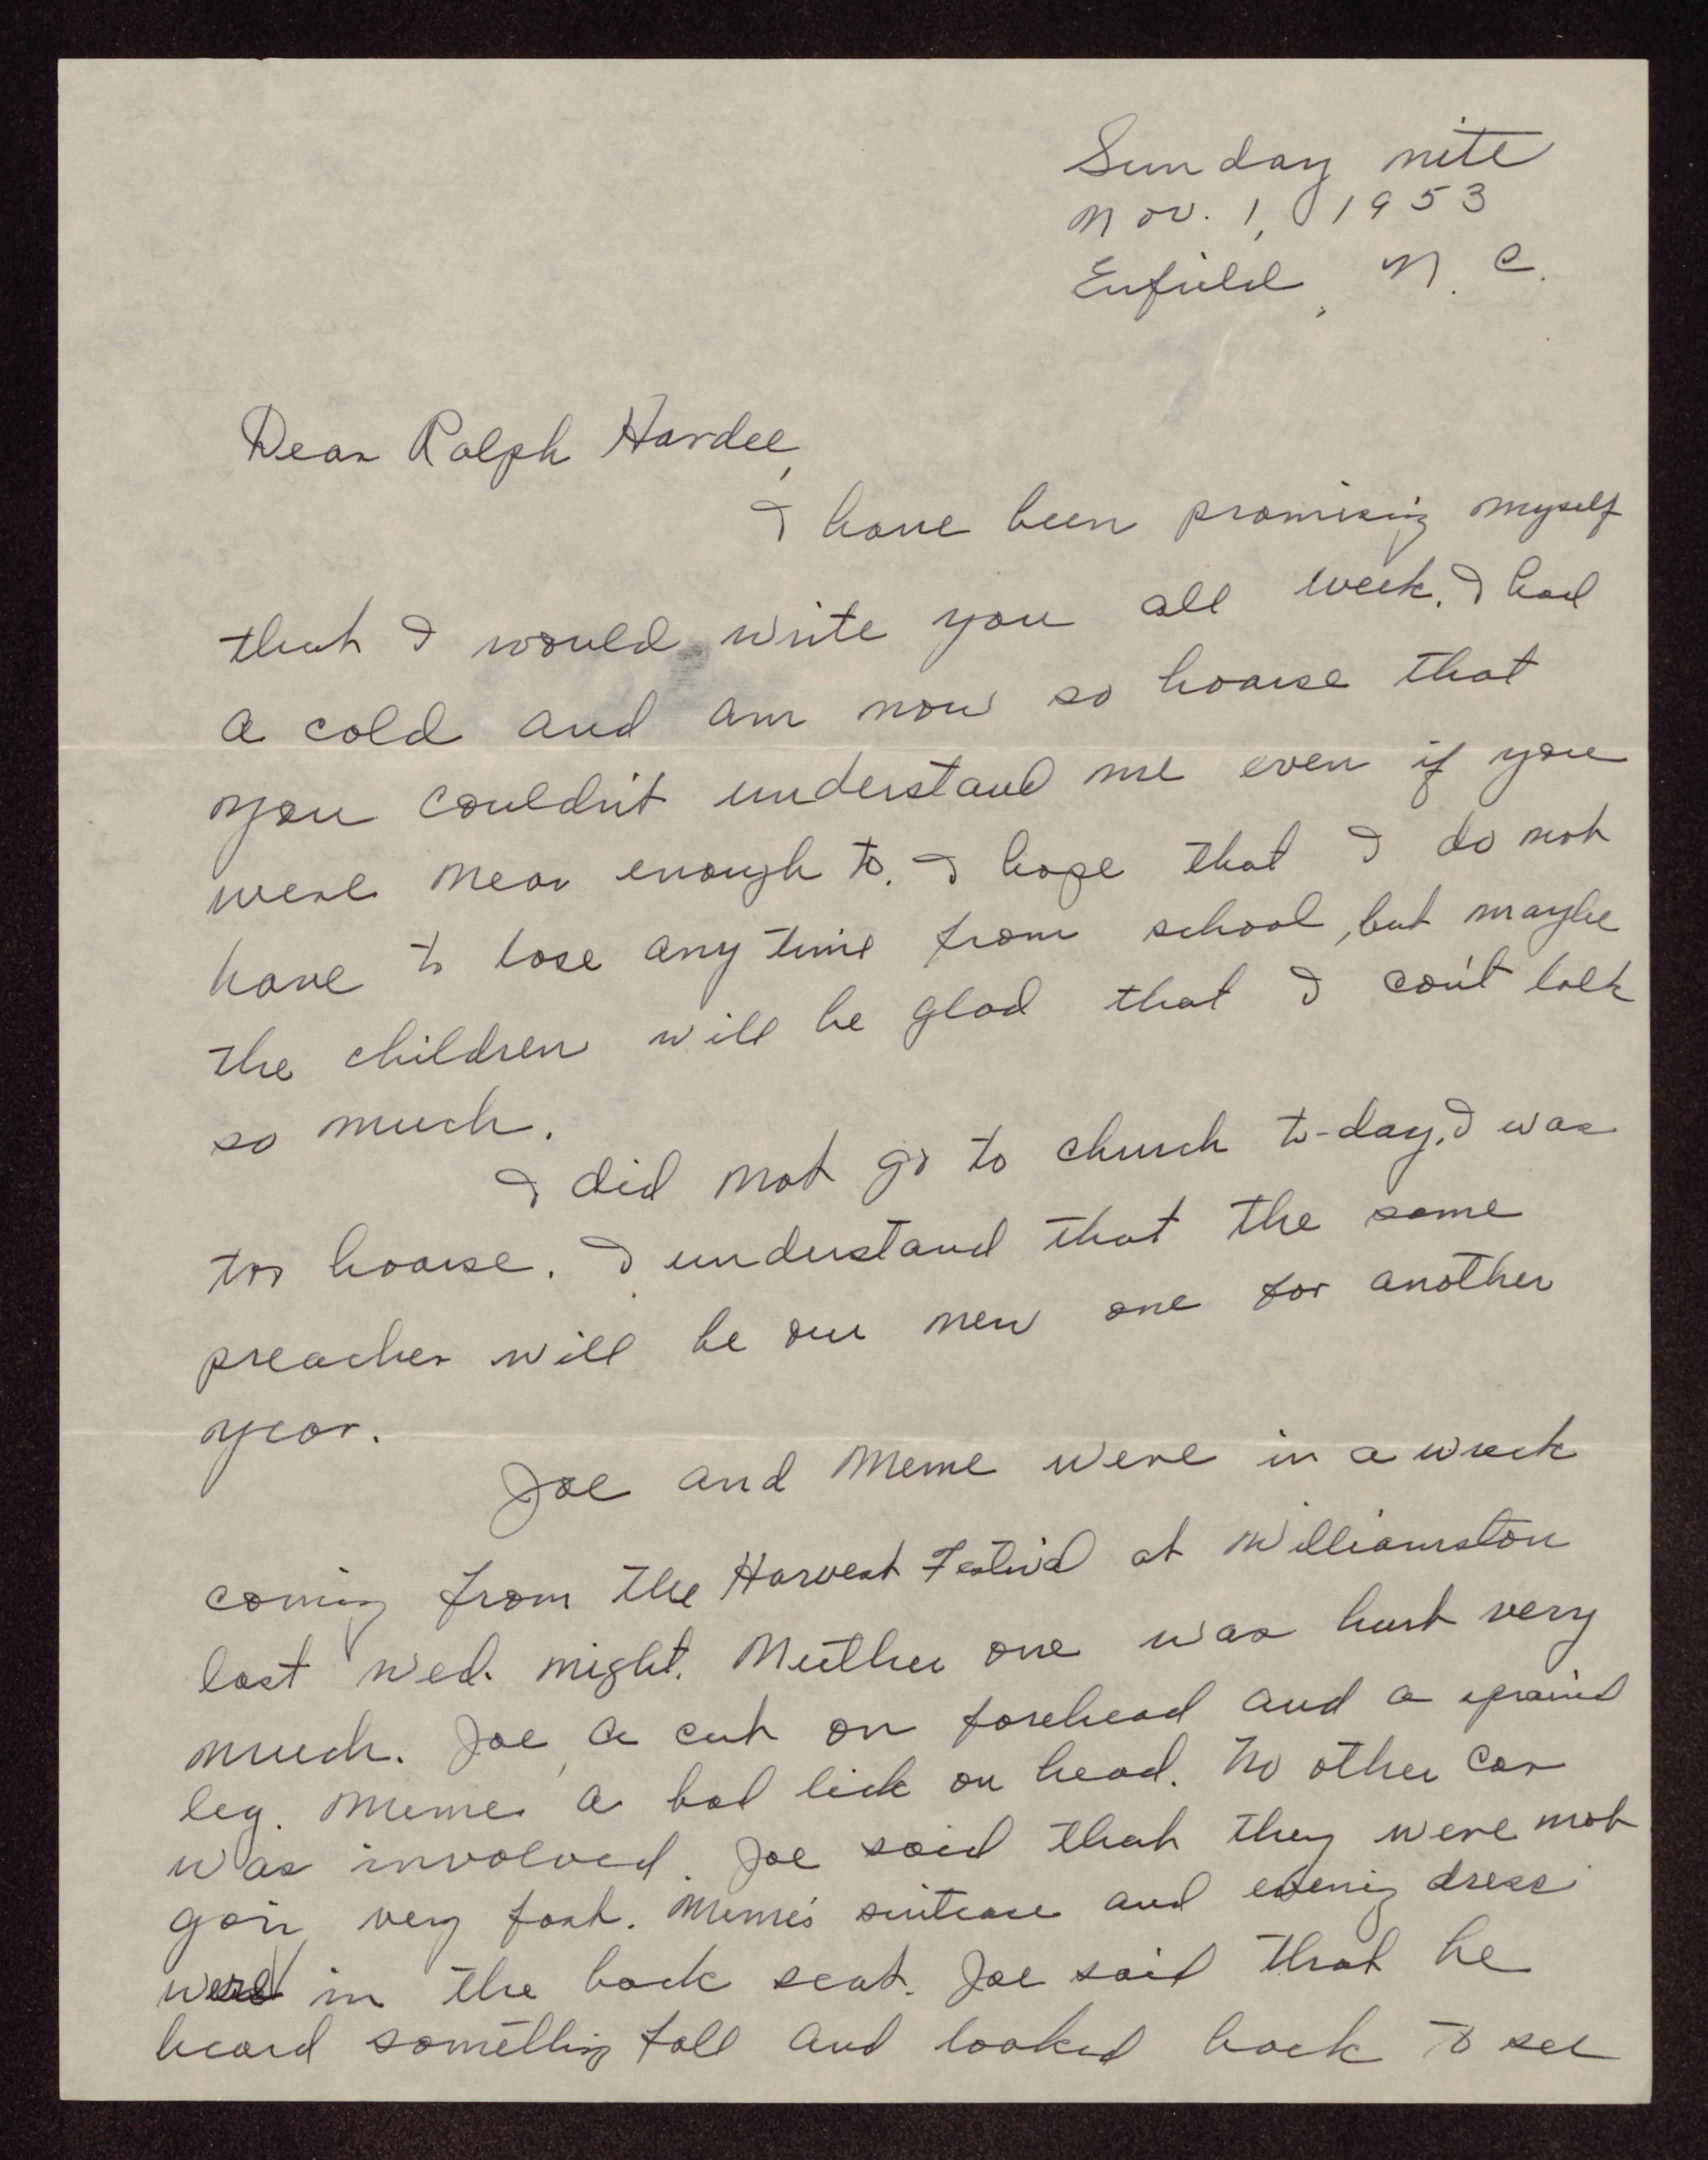 Sunday nite
Nov. 1, 1953
Enfield, N. C.
Dear Ralph Hardee,
I have been promising myself
that I would write you all week. I had
a cold and am now so hoarse that
you couldn't understand me even if you
were near enough to. I hope that I do not
have to lose any time from school, but maybe
the children will be glad that I can't talk
so much.
I did not go to church to-day. I was
too hoarse. I understand that the same
preacher will be our new one for another
year.
Joe and Meme were in a wreck
coming from the Harvest Festival at Williamston
last Wed. night. Neither one was hurt very
much. Joe, a cut on forehead and a sprained
leg. Meme a bad lick on head. No other car
was involved. Joe said that they were not
goin very fast. Meme's suitcase and evening dress
were in the back seat. Joe said that he
heard something fall and looked back to see